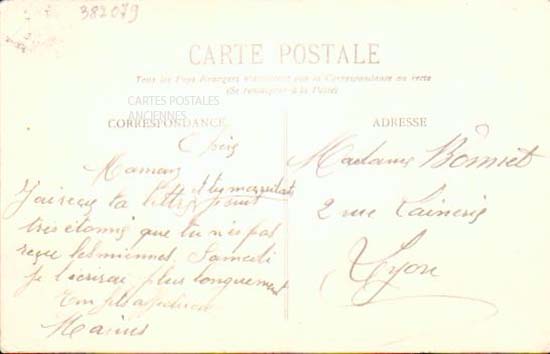 382079
CARTE POSTALE
Tous les Pays étrangers n'acceptent pas la Correspondance au recto
(Se renseigner à la Poste)
CARTES POSTALES
ANCIENNES
CORRESPONDANCE
ADRESSE
Chère
Maman
J'ai reçu ta lettre et tes je suis
très étonné que tu n'es pas
reçue les miennes. Samedi
je t'écrirai plus longuement
Ton fils
Madame Bonnet
2 rue Lainerie
Lyon